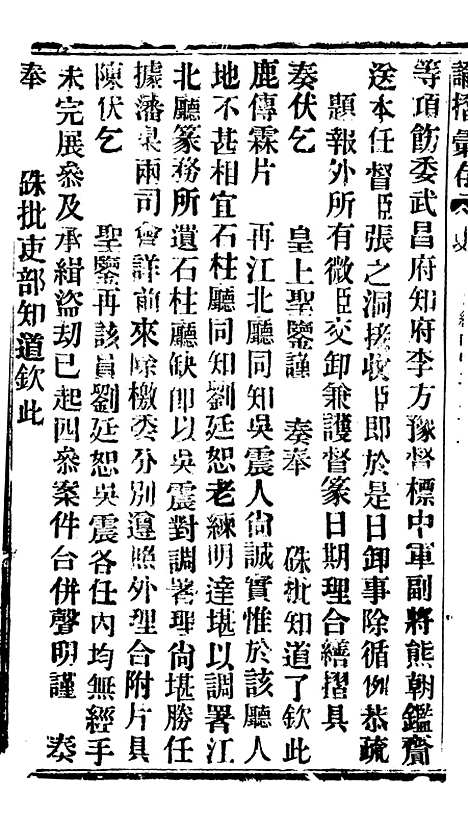 諭摺彙存
等項飭委武昌府知府李方豫督標中軍副將熊朝鑑齎
送本任督臣張之洞接收臣即於是日卸事除循例恭疏
題報外所有微臣交卸兼護督篆日期理合繕摺具
奏伏乞 皇上聖鑒謹 奏奉 硃批知道了欽此
鹿傳霖片 再江北廳同知吳震人尙誠實惟於該廳人
地不甚相宜石柱廳同知劉廷恕老練明達堪以調署江
北廳篆務所遺石柱廳缺即以吳震對調署理尙堪勝任
據藩臬兩司會詳前來除檄委分別遵照外理合附片具
陳伏乞 聖鑒再該員劉廷恕吳震各任內均無經手
未完展叅及承緝盜劫已起四叅案件合併聲明謹 奏
奉 硃批吏部知道欽此